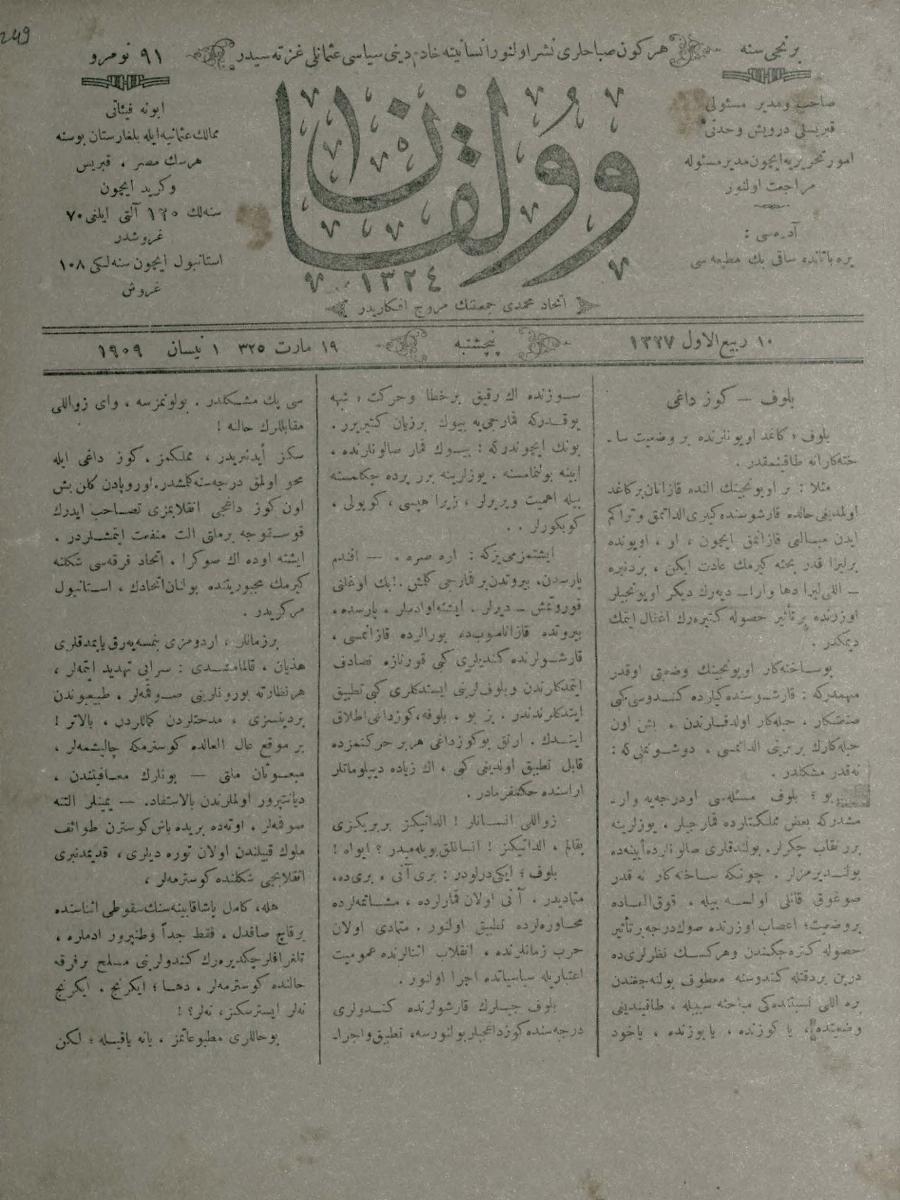 249
برنجی سنه
هر کون صباحلری نشر اولنور انسانیته خادم دینی سیاسی عثمانلی غزته سیدر
نومرو ۹۱
صاحب ومدیر مسئولی
قبریسلی درویش وحدتی
امور تحریریه ایچون مدیر مسئوله
مراجعت اولنور
آدره سی :
یره باتانده ساقی بك مطبعه سی
وولقان
۱۳۲٤
اتحاد محمدی جمعیتنك مروج افکاریدر
ابونه فیئاتی
ممالك عثمانیه ایله بلغارستان بوسنه
هرسك مصر ، قبریس
وکرید ایچون
سنه لك ۱۲۰ آلتی ایلغی ۷۰
غروشدر
استانبول ایچون سنه لکی ۱۰۸
غروش
۱۰ ربیع الاول ۱۳۲۷
پنجشنبه
۱۹ مارت ۳۲۵ ۱ نیسان ۱۹۰۹
بلوف — کوز داغی
بلوف ؛ کاغد اویونلرنده بر وضعیت سا۔
خته کارانه طاقنمقدر .
مثلا : بر اویونجینك النده قازانان بر کاغد
اولمدیغی حالده قارشوسنده کیلری الداتمق و تراکم
ایدن مبالغی قازانمق ایچون ، او ، اویونده
برلیرا قدر بحثه کیرمك عادت ایکن ، بردنبره
ـ اللی لیرا دها وار! ـ دیه رك دیکر اویونجیلر
اوزرنده بر تأثیر حصوله کتیره رك اغفال ایتمك
دیمکدر .
بو ساخته کار اویونجینك وضعیتی اوقدر
مهمدرکه : قارشوسنده کیلرده کندوسی کبی
صنعتکار ، حیله کار اولدقلرندن . بش اون
حیله کارك بربرینی الداتمسی ، دوشونملی که :
نه قدر مشکلدر .
بو ؛ بلوف مسئله سی اودرجه یه وار ـ
مشدرکه بعض مملکتلرده قمارجیلر . یوزلرینه
برر نقاب چکرلر . بولندقلری صالونلرده آیینه ده
بولندیرمزلر . چونکه ساخته کار نه قدر
صوغوق قانلی اولسه بیله ، فوق العاده
بر وضعیت ؛ اعصاب اوزرنده صوك درجه بر تأثیر
حصوله کتیره جکندن و هرکسك نظرلری ده
درین بر دقتله کندوسنه معطوف بوله جغندن
یره اللی نسبتنده کی مباحثه سببیله ، طاقندیغی
وضعیتده ، یا کوزنده ، یا یوزنده ، یاخود
سوزنده اك رقیق بر خطا و حرکت ؛ شبهه
یوقدرکه قمارجی یه بیوك بر زیان کتیریر .
بونك ایچوندرکه : بیوك قمار صالونلرنده ،
ایینه بولنمامسنه . یوزلرینه برر پرده چکلمسنه
بیله اهمیت ویریرلر ، زیرا هپسی ، کویولی .
کوبکورلر . .
ایشتمزمی یزکه : اره صره . — افندم
پارسدن ، بیروتدن بر قمارجی کلمش . !بك اوغلنی
قوروتمش ـ دیرلر . ایشته او ادملر . پارسده ،
بیروتده قازانامیوب ده بورالرده قازانمسی ،
قارشولرنده کندیلری کبی قورنازه تصادف
ایتمدکلرندن و بلوفلرینی ایستدکلری کبی تطبیق
ایتدکلرندندر . بز بو . بلوفه ، کوز داغی اطلاق
ایتدك . ارتق بو کوز داغی هر بر حرکتمزده
قابل تطبیق اولدیغی کبی ، اك زیاده دیپلوماتلر
اراسنده حکمفرمادر .
زواللی انسانلر ! الداتیکز بربریکزی
بقالم ، الداتیکز ! انسانلق بویله میدر ؟ ایواه !
بلوف ؛ ایکی درلودر : بری آنی ، بری ده ،
متمادیدر ، آنی اولان قمارلرده ، مشاتمه لرده
محاوره لرده تطبیق اولنور . متمادی اولان
حرب زمانلرنده ، انقلاب اثنالرنده عمومیت
اعتباریله سیاسیاتده اجرا اولنور .
بلوف جیلرك قارشولرنده کندولری
درجه سنده کوزداغجیلر بولنورسه ، تطبیق واجرا ـ
سی پك مشکلدر . بولونمزسه ، وای زواللی
مقابللرك حالنه !
سکز آیدنبریدر ، مملکتمز . کوز داغی ایله
محو اولمق درجه سنه کلمشدر . اوروپادن کلن بش
اون کوز داغجی انقلابمزی تصاحب ایدرك
قوستوجه بر ملتی الت منفعت ایتمشلردر .
ایشته اوده اك سوکرا . اتحاد فرقه سی شکلنه
کیرمك مجبوریتنده بولنان اتحادك ، استانبول
مرکزیدر .
بر زمانلر ، اردومزی بنمسه یه رق یاپمدقلری
هذیان . قالمامشدی : سرایی تهدید ایتمه لر ،
هر نظارته بورونلرینی صوقمه لر . طبیعیوندن
بردینسزی ، مدحتلردن کماللردن . بالاتر !
بر موقع عال العالده کوسترمکه چالیشمه لر ،
مبعوثان ملتی — یونارك معافیتندن ،
دیانتپرور اولملرندن بالاستفاده . — یمینلر التنه
صوقمه لر . اوته ده بریده باش کوسترن طوائف
ملوك قبیلندن اولان توره دیلری ، قدیمدنبری
انقلابجی شکلنده کوسترمه لر ،
هله ، کامل پاشا قابینه سنك سقوطی اثناسنده
برقاچ صافدل . فقط جداً وطنپرور ادملره ،
تلغرافلر چکدیره رك کندولرینی مسلح بر فرقه
حالنده کوسترمه لر . دها ؛ ایکرنج . ایکرنج
نه لر ایسترسکز ، نه لر ؟ !
بو حاللری مطبوعاتمز . یانه یاقیله ؛ لکن